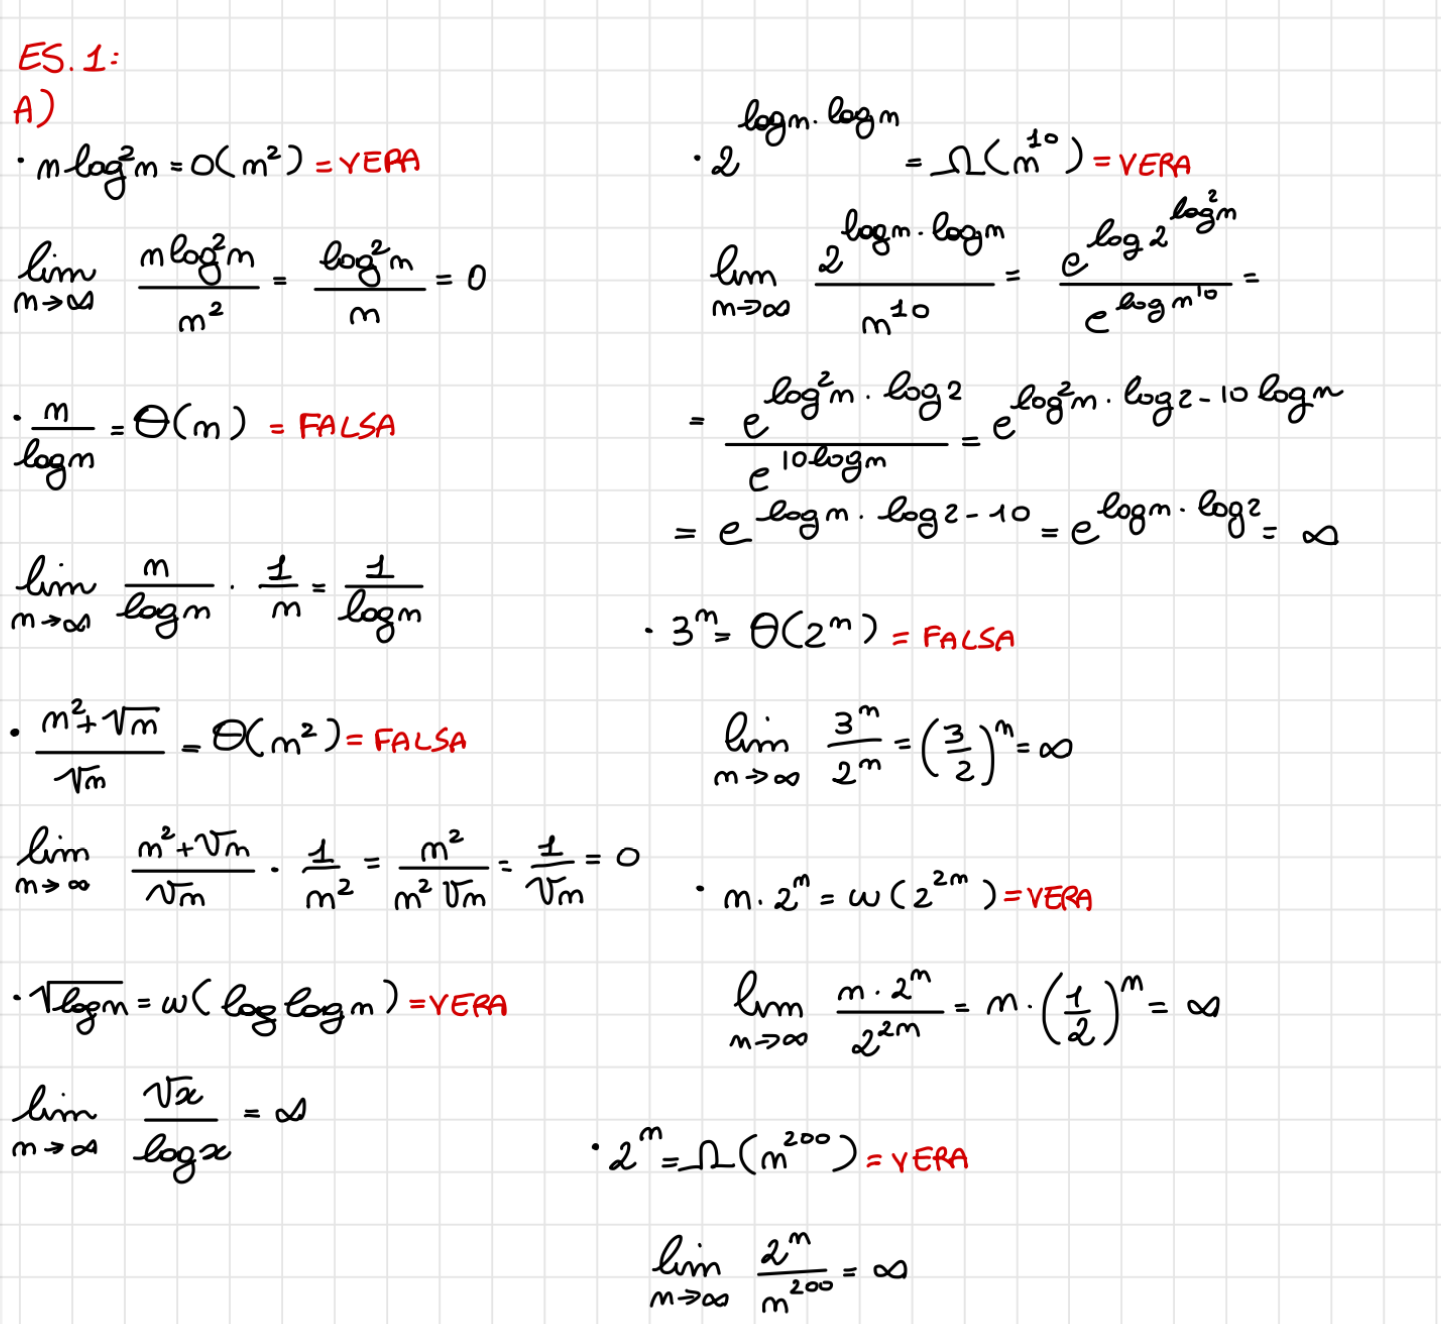 ES. 1:
A)
· n log²n = o(n²) = VERA
lim n→∞ n log²n / n² = log²n / n = 0
· n / log n = Θ(n) = FALSA
lim n→∞ n / log n · 1 / n = 1 / log n
· n² + √n / √n = Θ(n²) = FALSA
lim n→∞ n² + √n / √n · 1 / n² = n² / n² √n = 1 / √n = 0
· √log n = ω(log log n) = VERA
lim n→∞ √x / log x = ∞
· 2^(log n · log n) = Ω(n^10) = VERA
lim n→∞ 2^(log n · log n) / n^10 = e^(log 2^(log²n)) / e^(log n^10) =
= e^(log²n · log 2) / e^(10 log n) = e^(log²n · log 2 - 10 log n)
= e^(log n · log 2 - 10) = e^(log n · log 2) = ∞
· 3^n = Θ(2^n) = FALSA
lim n→∞ 3^n / 2^n = (3/2)^n = ∞
· n · 2^n = ω(2^2n) = VERA
lim n→∞ n · 2^n / 2^2n = n · (1/2)^n = ∞
· 2^n = Ω(n^200) = VERA
lim n→∞ 2^n / n^200 = ∞